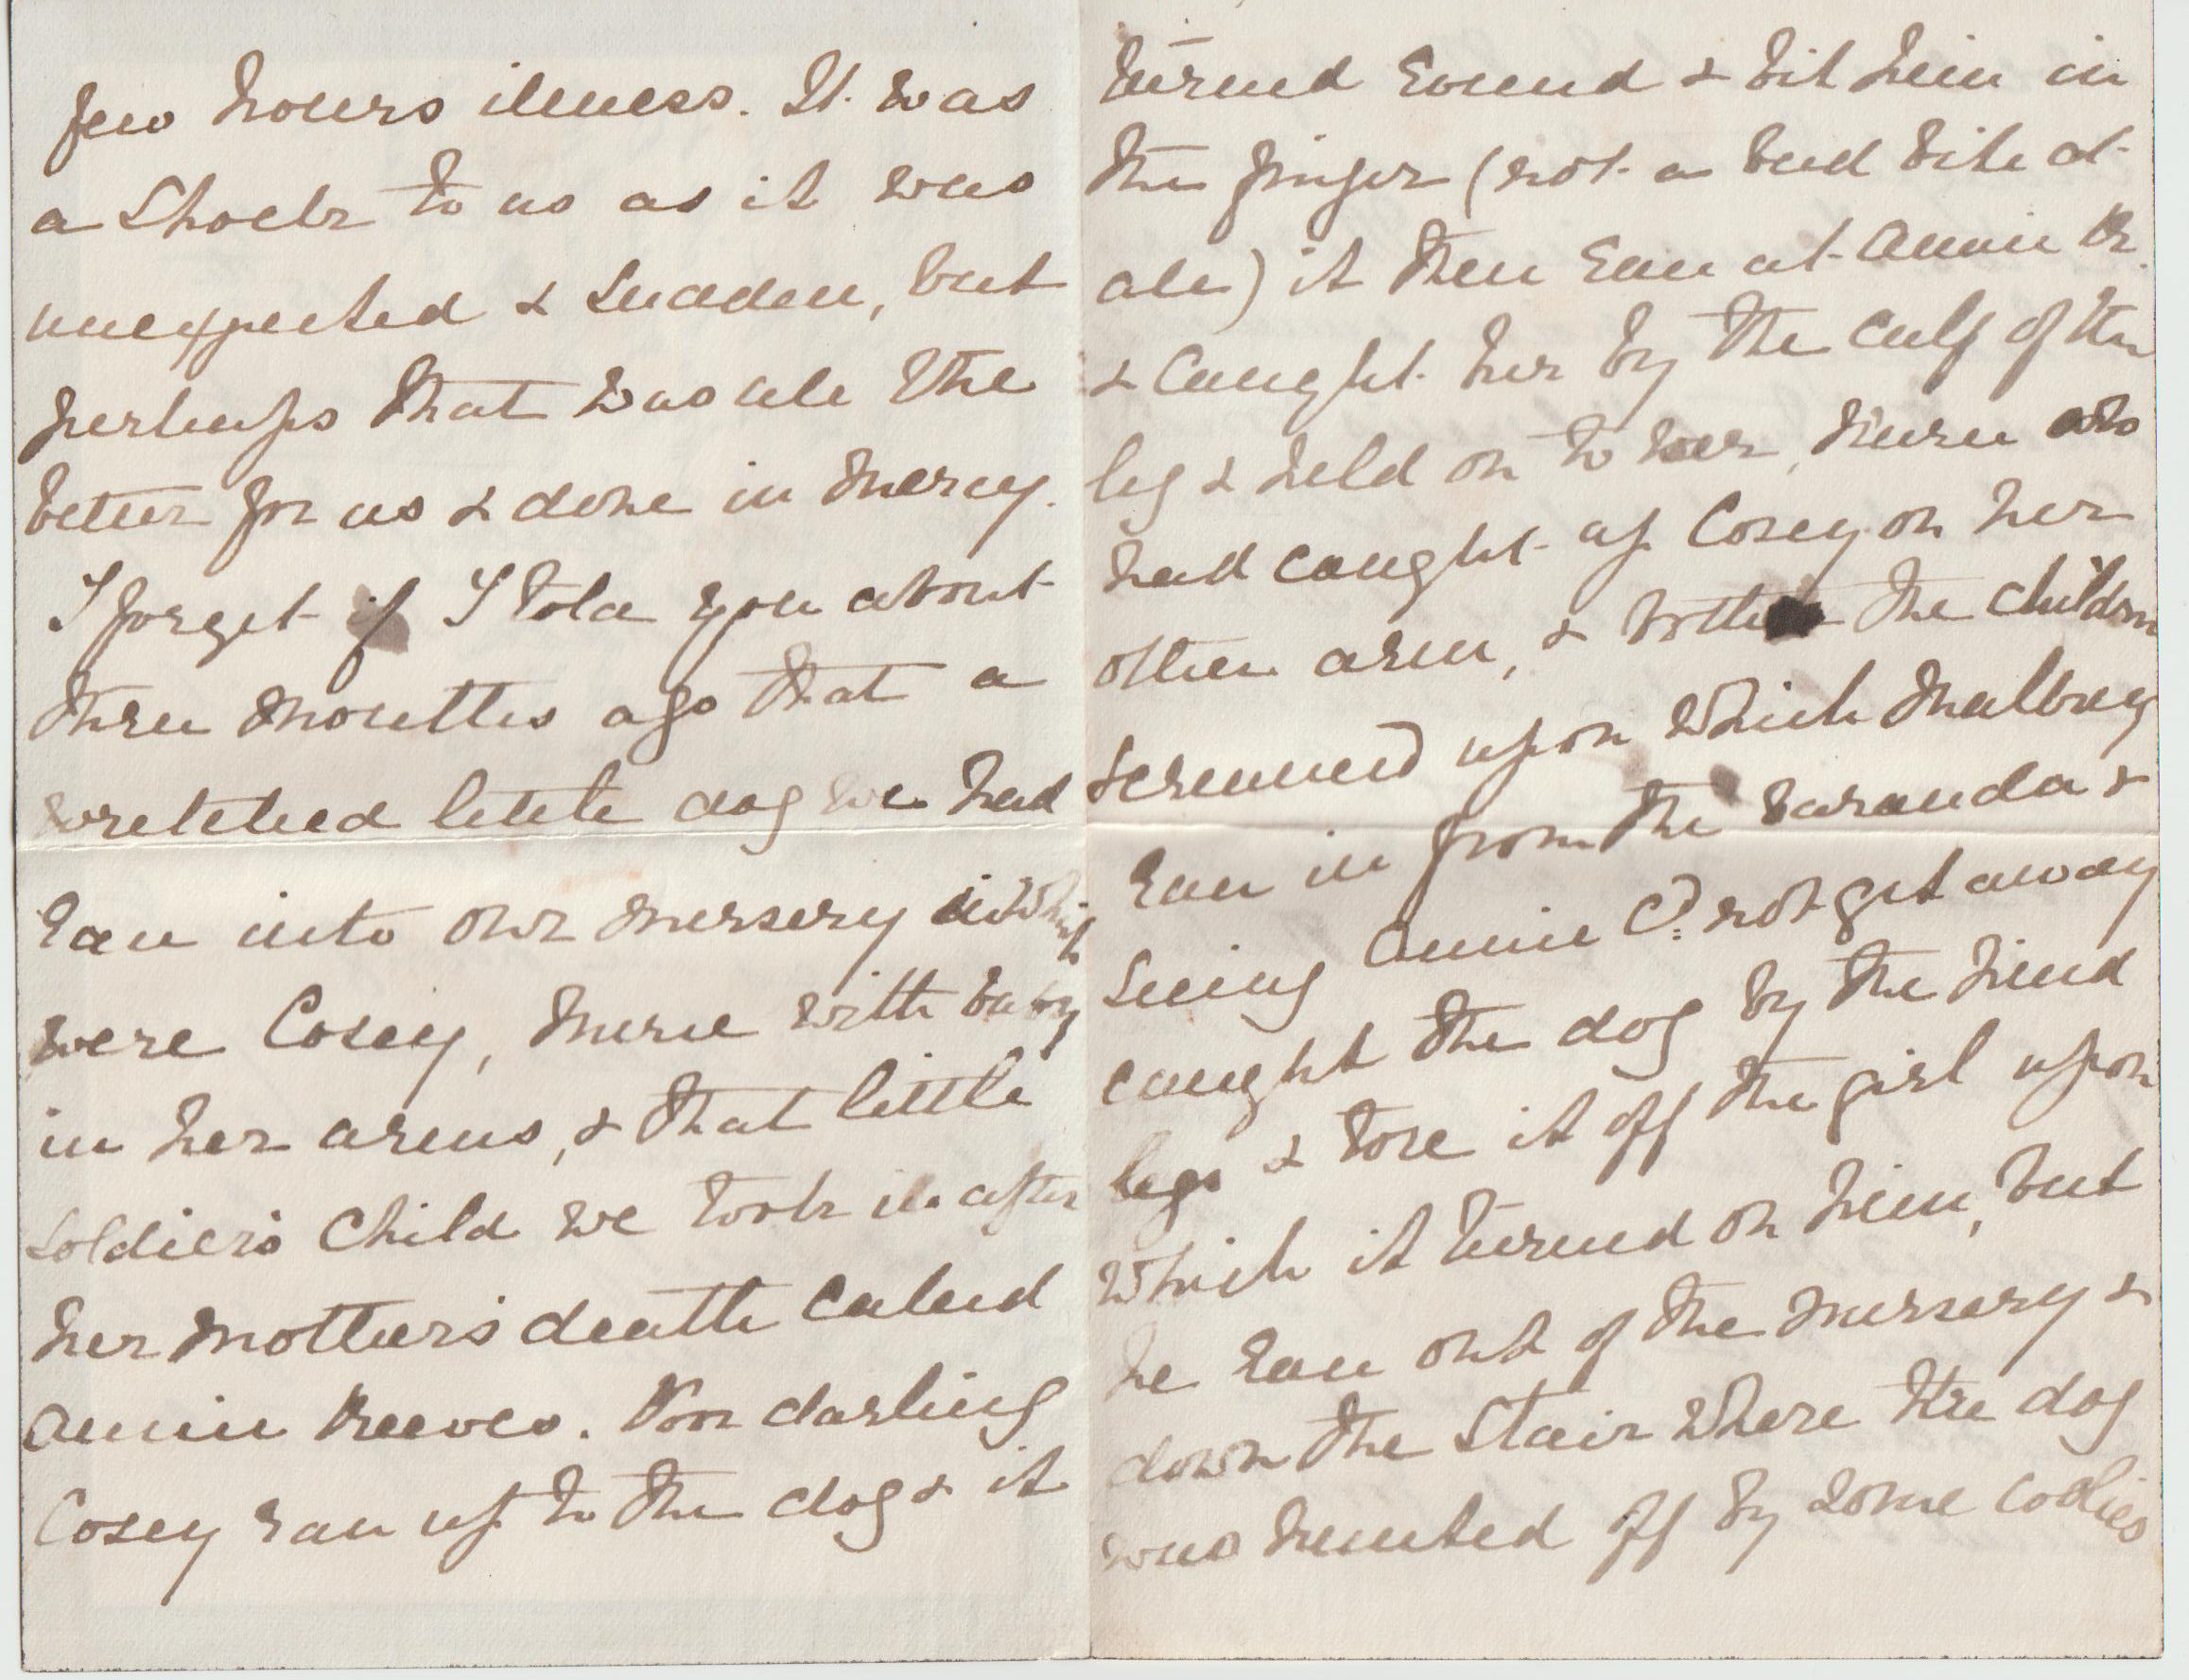 few hours illness. It was
a Shock to us as it was
unexpected & sudden, but
perhaps that was all the
better for us & done in Mercy.
I forget if I told you about
three Months ago that a
wretched little dog we had
ran into our Nursery in which
were Cosey, Nurse with baby
in her arms, & that little
Soldier's Child we took in after
her Mother's death called
Annie Reeves. Poor darling
Cosey ran up to the dog & it
turned round & bit him in
the finger (not a bad bite at
all) it then ran at Annie R.
& Caught her by the Calf of the
leg & held on to her, Nurse
had caught up Cosey on her
other arm, & both the children
screamed upon which Malbrey
ran in from the Varanda &
Seeing Annie Cd. not get away
caught the dog by the hind
legs & tore it off the girl upon
which it turned on him, but
he ran out of the Nursery &
down the Stair where the dog
was hunted off by some coolies